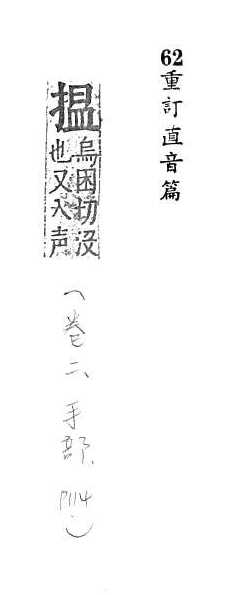 62重訂直音篇
搵烏困切沒
也又入声
(卷二、手部、P114)